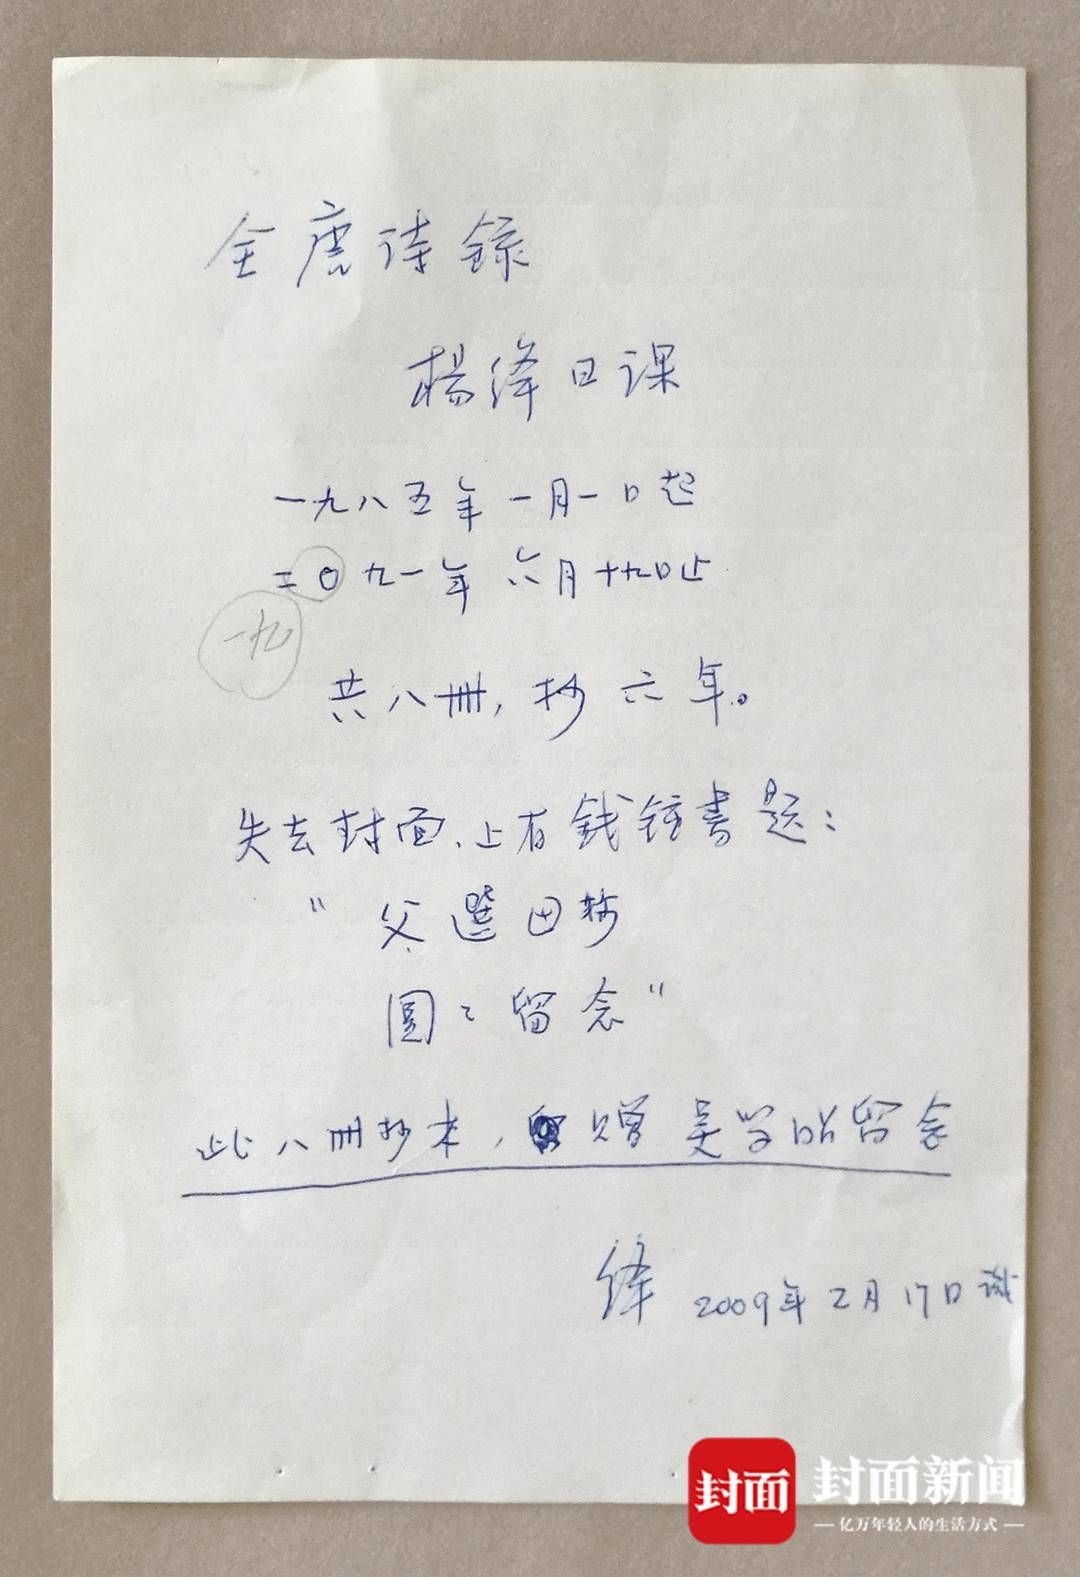 全唐诗録
楊绛日课
一九八五年一月一日起
二〇九一年六月十九日止
一九
共八冊，抄六年。
失去封面、上有钱锺書题：
“父選田抄
圓〻留念”
此八冊抄本，赠吴学昭留念
绛 2009年2月17日识
封面 封面新闻
亿万年轻人的生活方式